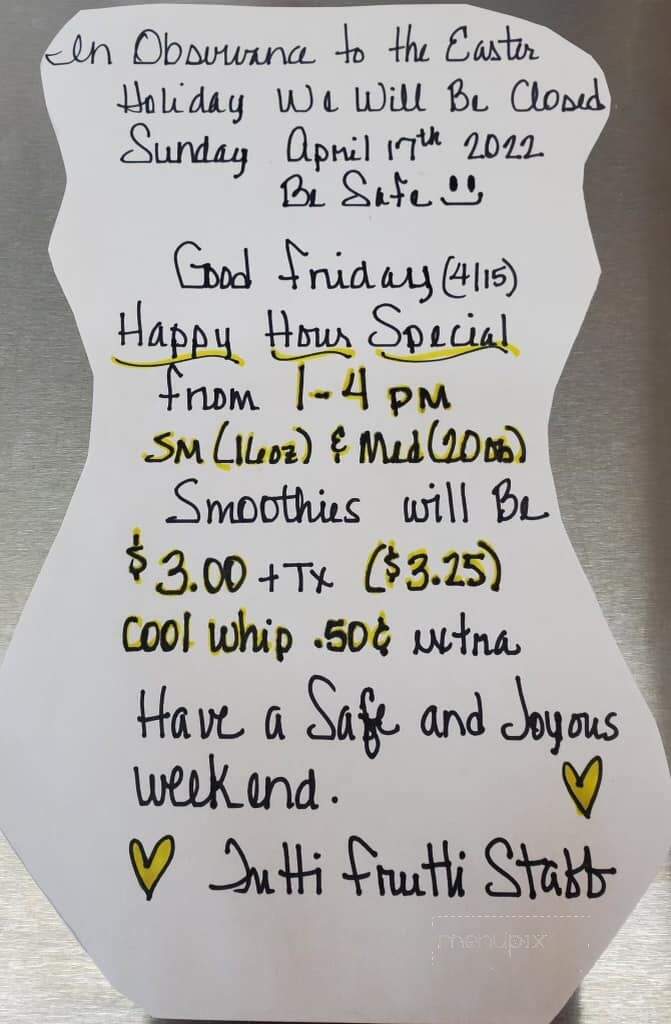 In Observance to the Easter
Holiday We Will Be Closed
Sunday April 17th 2022
Be Safe
Good Friday (4/15)
Happy Hour Special
from 1-4 PM
SM (16oz) & Med (20oz)
Smoothies will Be
$3.00 + Tx ($3.25)
Cool Whip .50¢ extra
Have a Safe and Joyous
weekend.
Tutti Frutti Staff
menupix